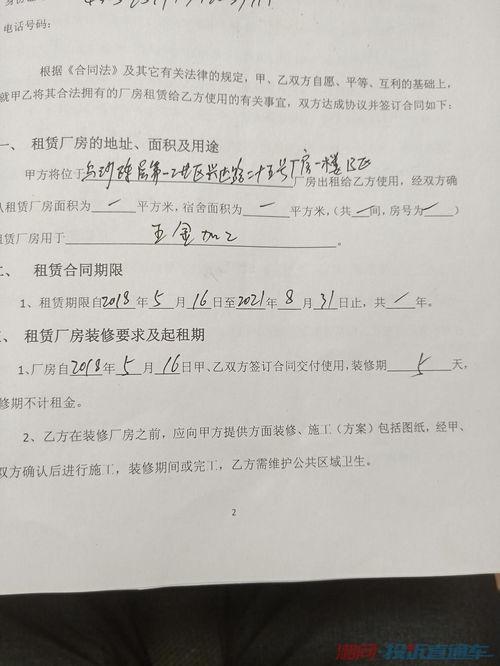 电话号码：
根据《合同法》及其它有关法律的规定，甲、乙双方自愿、平等、互利的基础上，
就甲乙将其合法拥有的厂房租赁给乙方使用的有关事宜，双方达成协议并签订合同如下：
租赁厂房的地址、面积及用途
甲方将位于乌沙陈屋第一工业区兴达路二十五号厂房一楼B区
厂房出租给乙方使用，经双方确
认租赁厂房面积为一平方米，宿舍面积为一平方米，（共一间，房号为一）
租赁厂房用于五金加工。
二、租赁合同期限
1、租赁期限自2018年5月16日至2021年8月31日止，共/年。
租赁厂房装修要求及起租期
1、厂房自2018年5月16日甲、乙双方签订合同交付使用，装修期5天，
修期不计租金。
2、乙方在装修厂房之前，应向甲方提供方面装修、施工（方案）包括图纸，经甲、
双方确认后进行施工，装修期间或完工，乙方需维护公共区域卫生。
2
湘问·投诉直通车